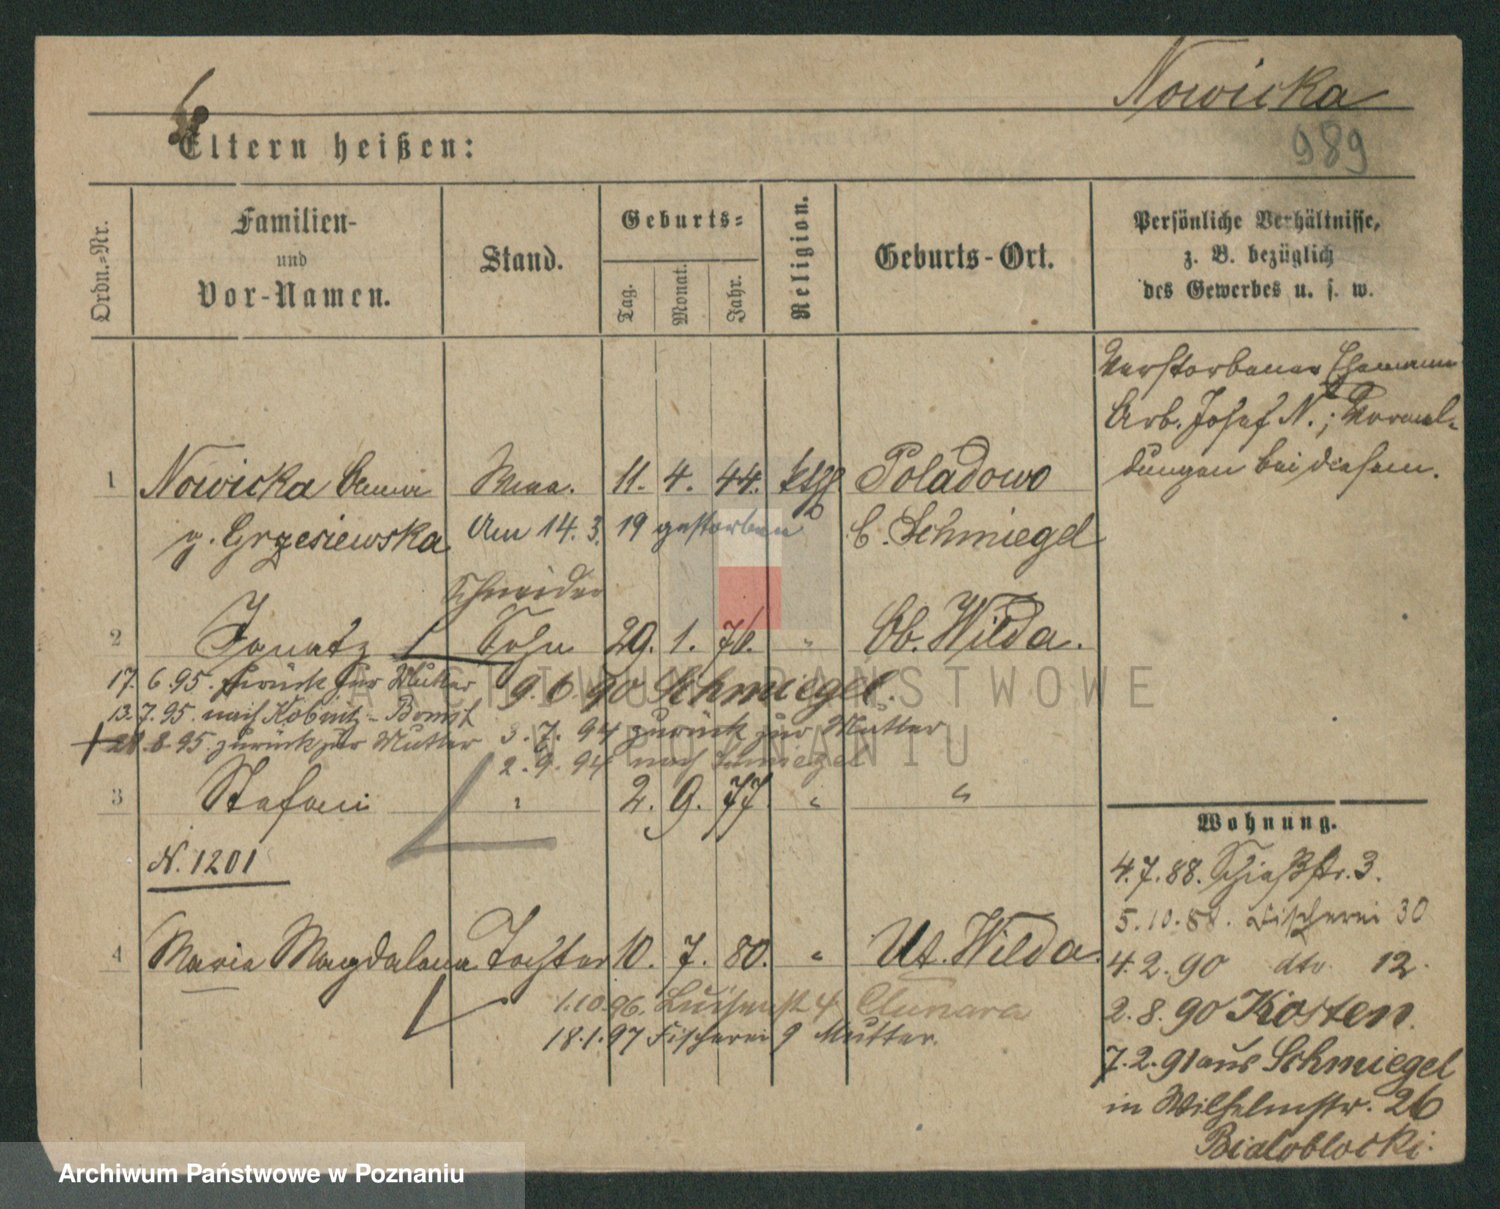 Nowicka
989
Eltern heißen:
Ordn.-Nr.
Familien-
und
Vor-Namen.
Stand.
Geburts-
Tag.
Monat.
Jahr.
Religion.
Geburts-Ort.
Persönliche Verhältnisse,
z. B. bezüglich
des Gewerbes u. s. w.
Verstorbener Ehemann
Arb. Josef N.; Vormel-
dungen bei diesem.
1 Nowicka 11. 4. 44. kth Poladowo
g. Grzesiewska Am 14. 3. 19 gestorben b. Schmiegel
Schneider
2 Ignatz Sohn 29. 1. 70. " Ob. Wilda.
17. 6. 95. zurück zur Mutter 9 6 90 Schmiegel.
13. 7. 95. nach Köbnitz - Bomst
3. 7. 94 zurück zur Mutter
28. 8. 95. zurück zur Mutter
2. 9. 94 nach Schmiegel
3 Stefani " 2. 9. 77. " "
N. 1201
4 Maria Magdalena Tochter 10. 7. 80. " Ut. Wilda.
1.10.96. Luisenst 4
18.1.97 Fischerei 9 Mutter.
Wohnung.
4. 7. 88. Schießstr. 3.
5. 10. 88. Fischerei 30
4. 2. 90 dto 12.
2. 8. 90 Kosten.
7. 2. 91 aus Schmiegel
in Wilhelmstr. 26
Bialoblocki.
ARCHIWUM PAŃSTWOWE
W POZNANIU
Archiwum Państwowe w Poznaniu